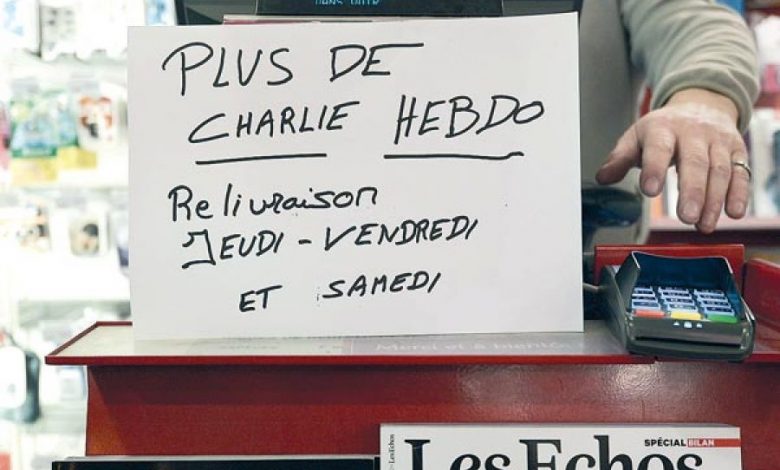 PLUS DE
CHARLIE HEBDO
Relivraison
JEUDI - VENDREDI
ET SAMEDI
Merci et à bientôt
SPÉCIAL BILAN
Les Echos